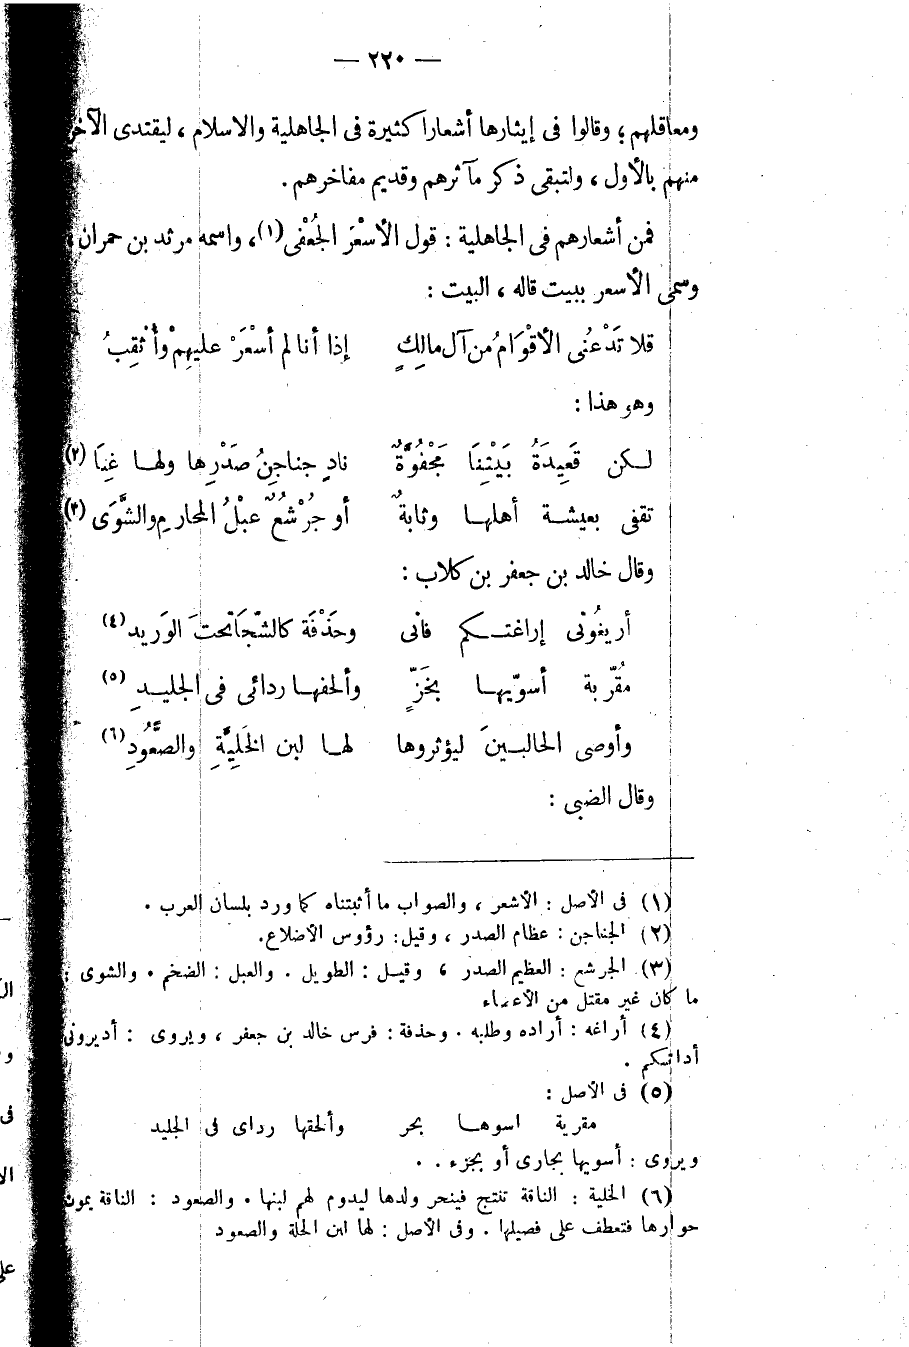 — ٢٢٠ —
ومعاقلهم ؛ وقالوا فى إيثارها أشعارا كثيرة فى الجاهلية والاسلام ، ليقتدى الآخر
منهم بالأول ، ولتبقى ذكر مآثرهم وقديم مفاخرهم .
فمن أشعارهم فى الجاهلية : قول الأسْعَر الجُعْفى (١) ، واسمه مرثد بن حمران ،
وسمى الأسعر ببيت قاله ، البيت :
فلا تَدْعُنى الأقْوَامُ من آل مالِكٍ إذا أنا لم أسْعَرْ عليهِمْ وأُثْقِبُ
وهو هذا :
لـكن قَعِيدَةُ بَيْتِنَا مَجْفُوَّةٌ نادٍ جناجِنُ صَدْرِها ولهـا غِنَا (٢)
تقفى بعيشـة أهلهـا وثابةٌ أو جُرْشُعٌ عبْلُ المحارمِ والشَّوَى (٣)
وقال خالد بن جعفر بن كلاب :
أريغُونى إراغتـكم فانى وحَذْفَة كالشّجَا تحتَ الوَريد (٤)
مُقرّبة أسوّيهـا بِخَزٍّ وألحفهـا ردائى فى الجليـدِ (٥)
وأوصى الحالبـينَ ليؤثروها لهـا لبن الخَلِيَّةِ والصَّعُودِ (٦)
وقال الضبى :
(١) فى الأصل : الأشعر ، والصواب ما أثبتناه كما ورد بلسان العرب .
(٢) الجناجن : عظام الصدر ، وقيل : رؤوس الأضلاع .
(٣) الجرشع : العظيم الصدر ، وقيـل : الطويل . والعبل : الضخم . والشوى :
ما كان غير مقتل من الأعضاء
(٤) أراغه : أراده وطلبه . وحذفة : فرس خالد بن جعفر ، ويروى : أديرونى
أداتـكم .
(٥) فى الأصل :
مقربة اسوهـا بحر وألحقها رداى فى الجليد
ويروى : أسويها بجارى أو بجزء . .
(٦) الخلية : الناقة تنتج فينحر ولدها ليدوم لهم لبنها . والصعود : الناقة يموت
حوارها فتعطف على فصيلها . وفى الأصل : لها ابن الحلة والصعود